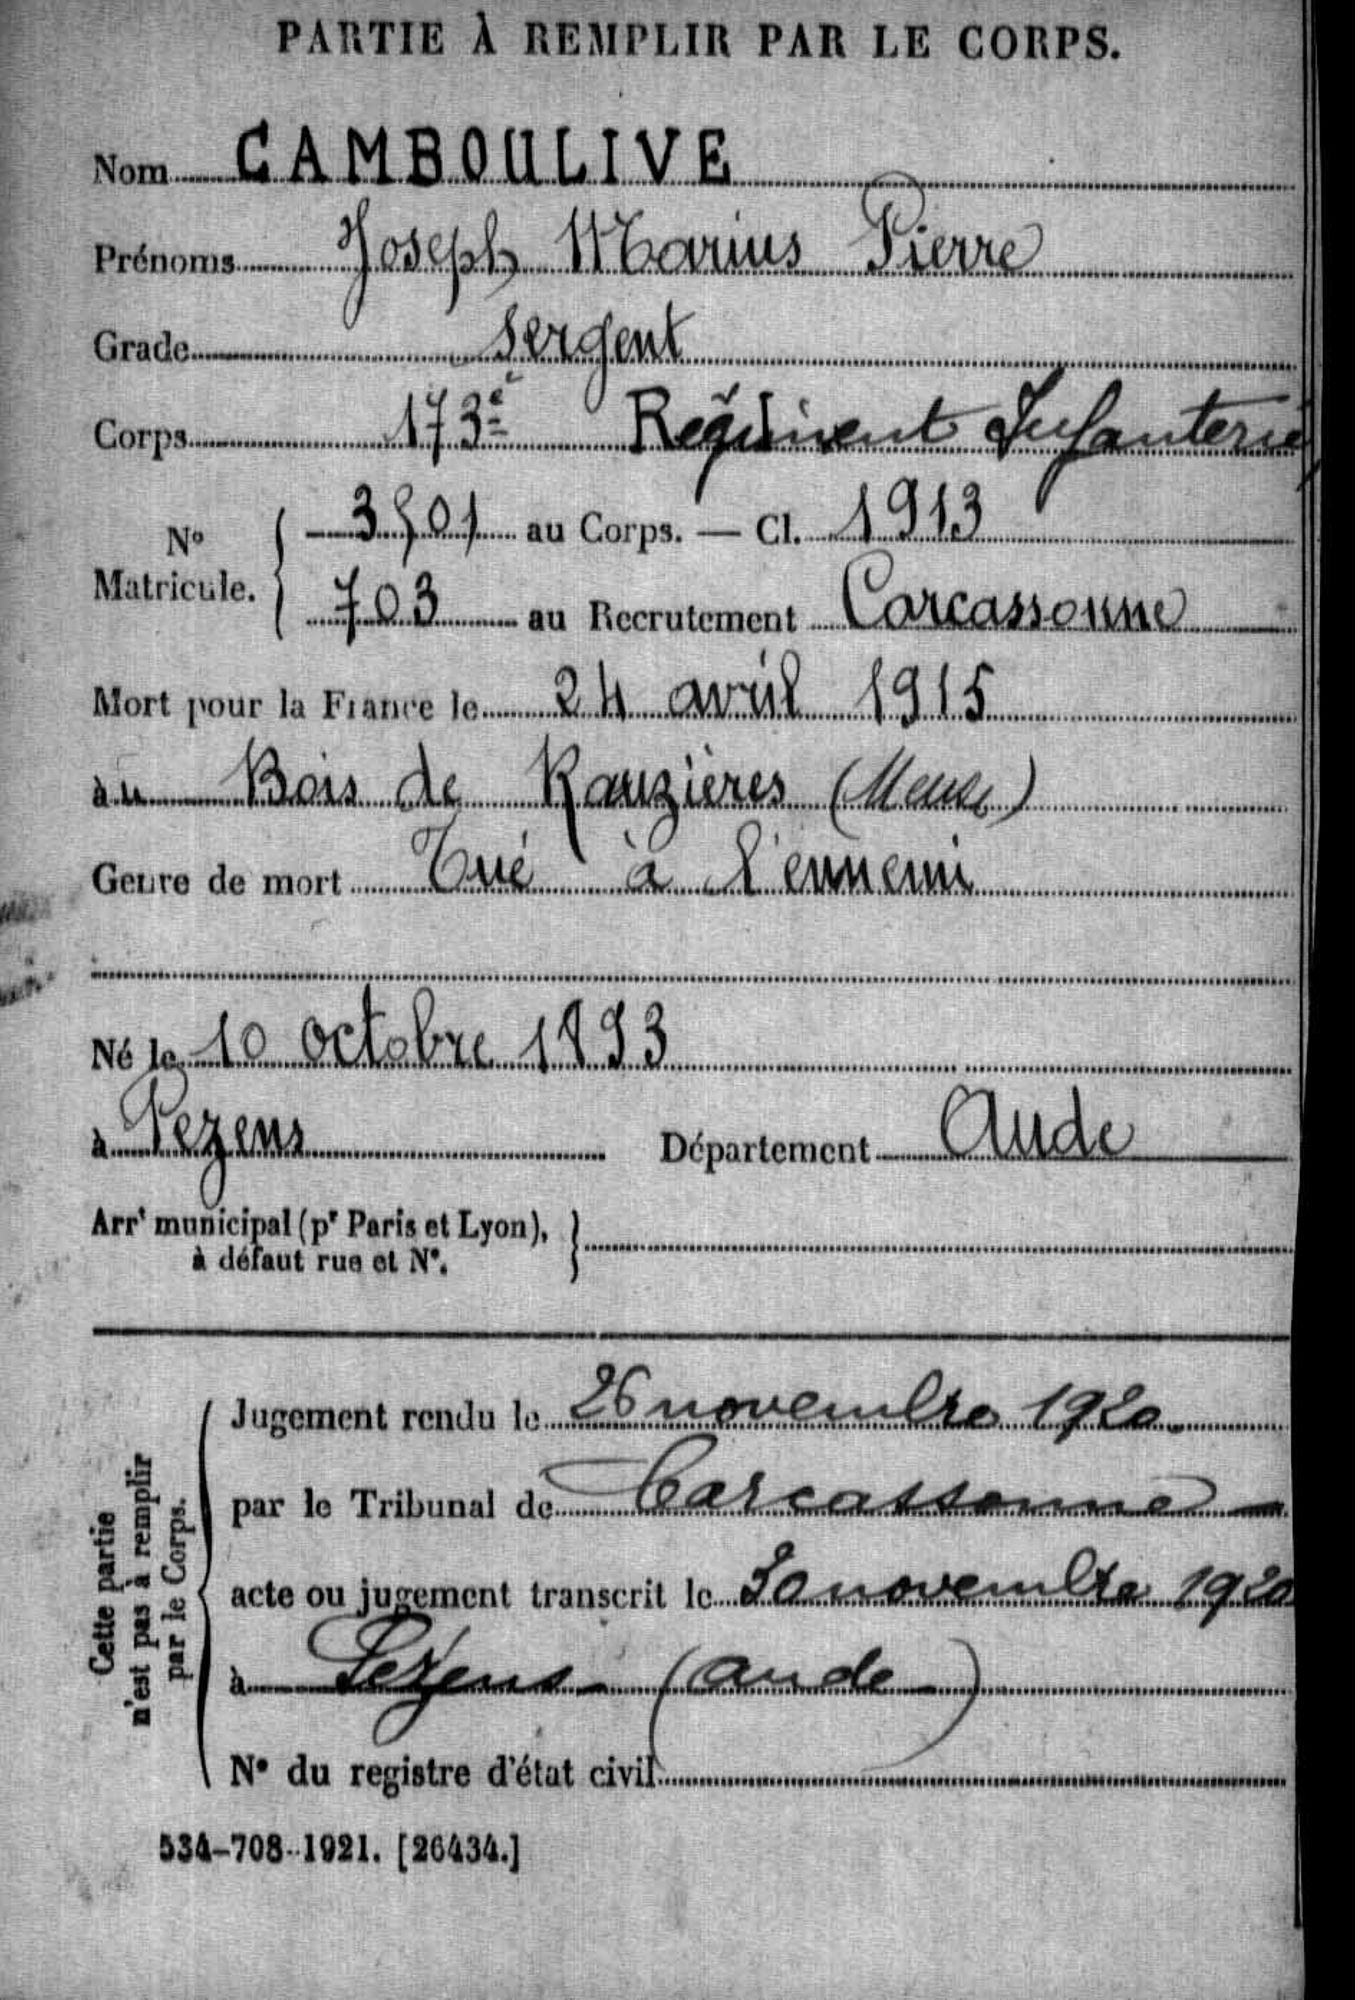 PARTIE À REMPLIR PAR LE CORPS.
Nom CAMBOULIVE
Prénoms Joseph Marius Pierre
Grade Sergent
Corps 173e Régiment Infanterie
No Matricule. { 3501 au Corps. — Cl. 1913
703 au Recrutement Carcassonne
Mort pour la France le 24 avril 1915
au Bois de Rauzières (Meuse)
Genre de mort Tué à l'ennemi
Né le 10 octobre 1893
à Pezens Département Aude
Arrt municipal (pr Paris et Lyon), }
à défaut rue et No.
Cette partie
n'est pas à remplir
par le Corps.
Jugement rendu le 26 novembre 1920.
par le Tribunal de Carcassonne
acte ou jugement transcrit le 30 novembre 1920
à Pezens (aude)
No du registre d'état civil
534-708-1921. [26434.]